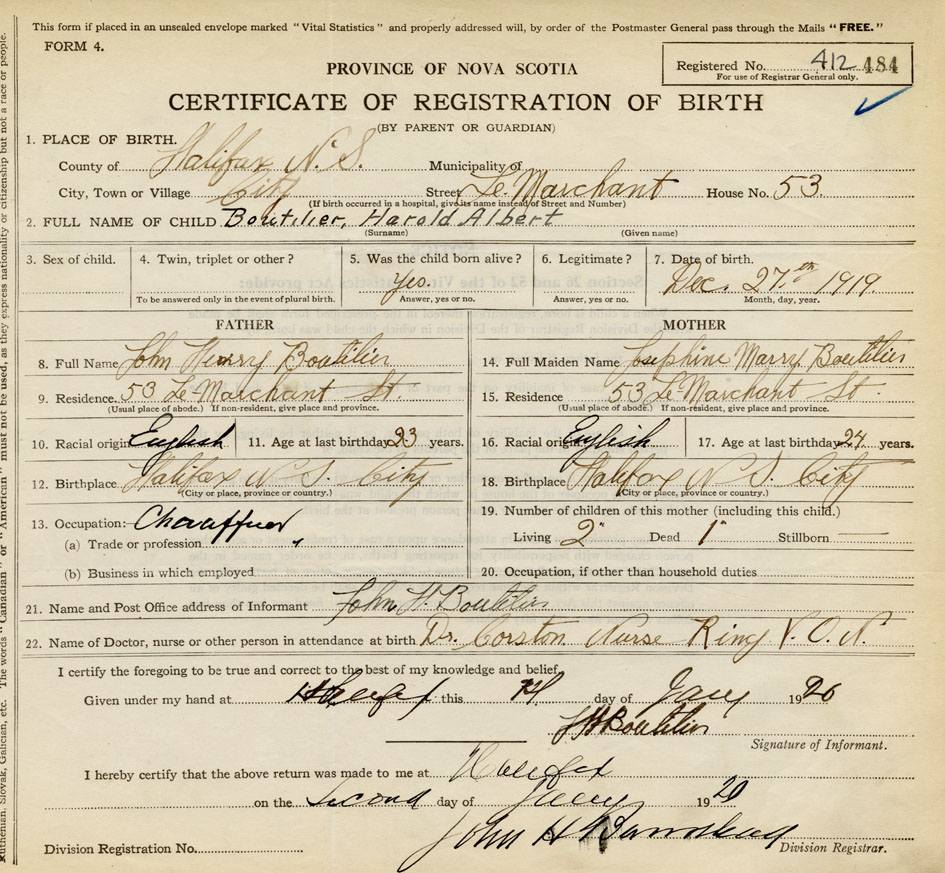 This form if placed in an unsealed envelope marked "Vital Statistics" and properly addressed will, by order of the Postmaster General pass through the Mails "FREE."
FORM 4.
Registered No. 412 484
For use of Registrar General only.
PROVINCE OF NOVA SCOTIA
CERTIFICATE OF REGISTRATION OF BIRTH
(BY PARENT OR GUARDIAN)
1. PLACE OF BIRTH.
County of Halifax N.S. Municipality of
City, Town or Village City Street Le Marchant House No. 53
(If birth occurred in a hospital, give its name instead of Street and Number)
2. FULL NAME OF CHILD Boutilier, Harold Albert
(Surname) (Given name)
3. Sex of child. 4. Twin, triplet or other? 5. Was the child born alive? 6. Legitimate? 7. Date of birth.
Yes. Dec. 27th 1919
To be answered only in the event of plural birth. Answer, yes or no. Answer, yes or no. Month, day, year.
FATHER MOTHER
8. Full Name John Henry Boutilier 14. Full Maiden Name Josephine Marry Boutilier
9. Residence. 53 Le Marchant St. 15. Residence 53 Le Marchant St.
(Usual place of abode.) If non-resident, give place and province. (Usual place of abode.) If non-resident, give place and province.
10. Racial origin English 11. Age at last birthday 23 years. 16. Racial origin English 17. Age at last birthday 24 years.
12. Birthplace Halifax N S. City 18. Birthplace Halifax N S. City
(City or place, province or country.) (City or place, province or country.)
13. Occupation: Chauffeur 19. Number of children of this mother (including this child.)
(a) Trade or profession Living 2 Dead 1 Stillborn —
(b) Business in which employed 20. Occupation, if other than household duties
21. Name and Post Office address of Informant John H. Boutilier
22. Name of Doctor, nurse or other person in attendance at birth Dr. Corston Nurse Ring V.O.N.
I certify the foregoing to be true and correct to the best of my knowledge and belief
Given under my hand at Halifax this day of Jany 1920
J H Boutilier
Signature of Informant.
I hereby certify that the above return was made to me at Halifax
on the second day of Jany 1920
John H
Division Registration No. Division Registrar.
Ruthenian, Slovak, Galician, etc. The words "Canadian" or "American" must not be used, as they express nationality or citizenship but not a race or people.